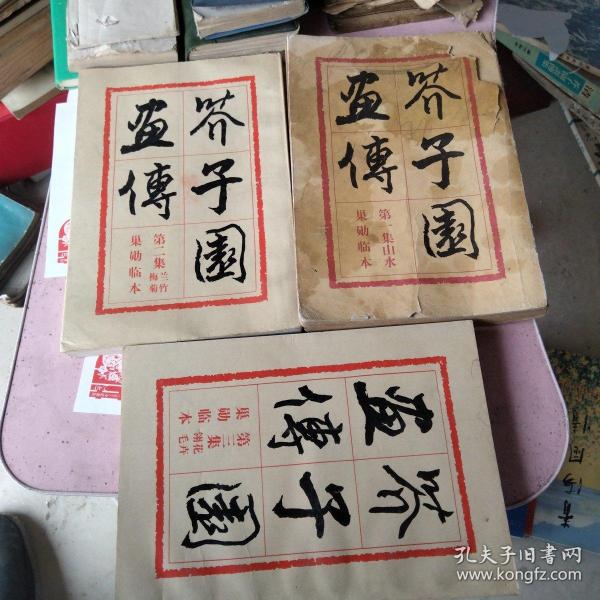 芥子園
畫傳
第二集 兰竹梅菊
巢勋临本
芥子園
畫傳
第一集 山水
巢勋临本
芥子園
畫傳
第三集 花卉翎毛
巢勋临本
孔夫子旧书网
www.kongfz.com